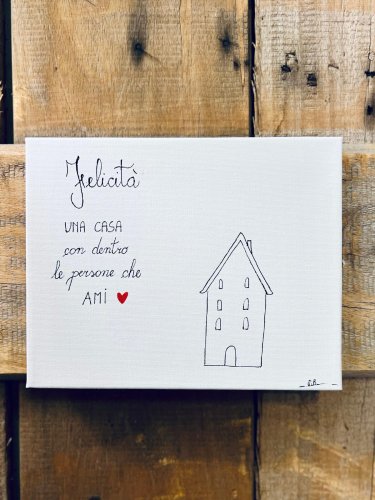 Felicità
UNA CASA
con dentro
le persone che
AMi